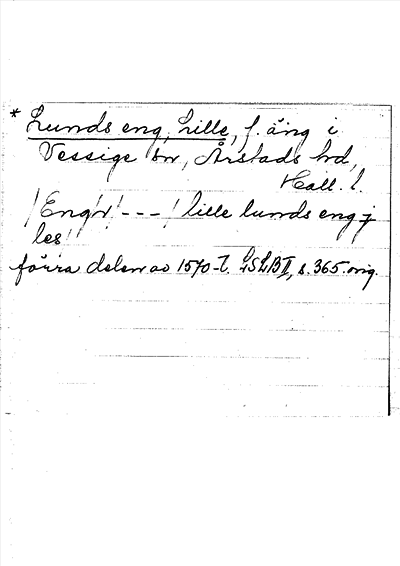 * Lunds eng, Lille, f. äng i
Vessige sn, Årstads hd,
Hall. l.
/Eng/ /---/ lille lunds eng j
les
förra delen av 1570-t. LSLB II, s. 365. orig.